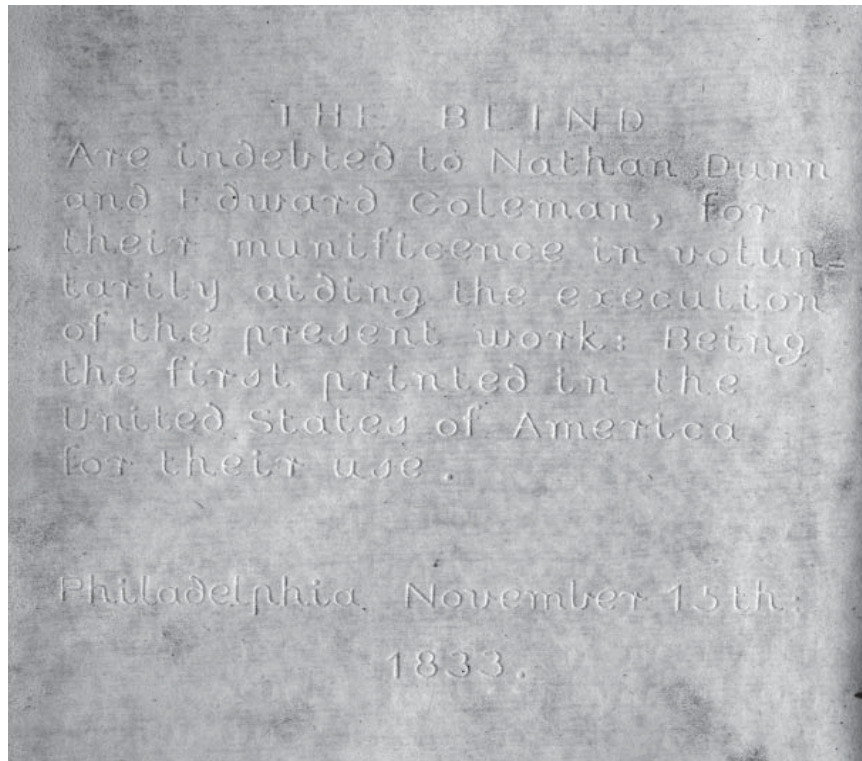 THE BLIND
Are indebted to Nathan Dunn
and Edward Coleman, for
their munificence in volun=
tarily aiding the execution
of the present work: Being
the first printed in the
United States of America
for their use.
Philadelphia November 15th:
1833.